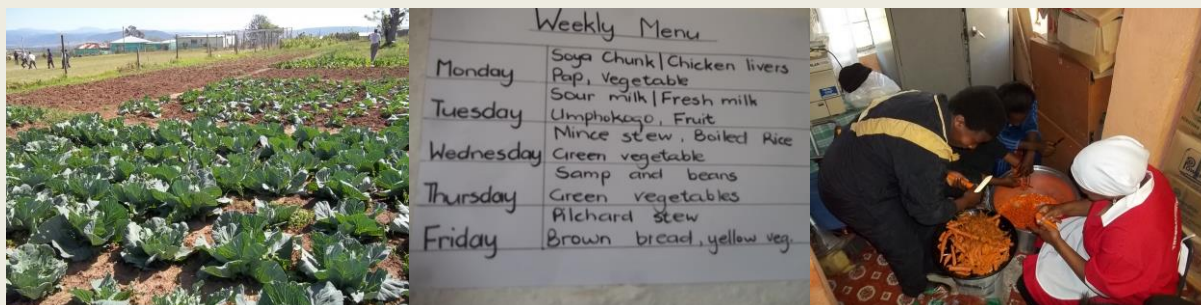 Weekly Menu
Monday
Soya Chunk/Chicken livers
Pap, Vegetable
Tuesday
Sour milk/Fresh milk
Umphokoqo, Fruit
Wednesday
Mince stew, Boiled Rice
Green vegetable
Thursday
Samp and beans
Green vegetables
Friday
Pilchard stew
Brown bread, yellow veg.